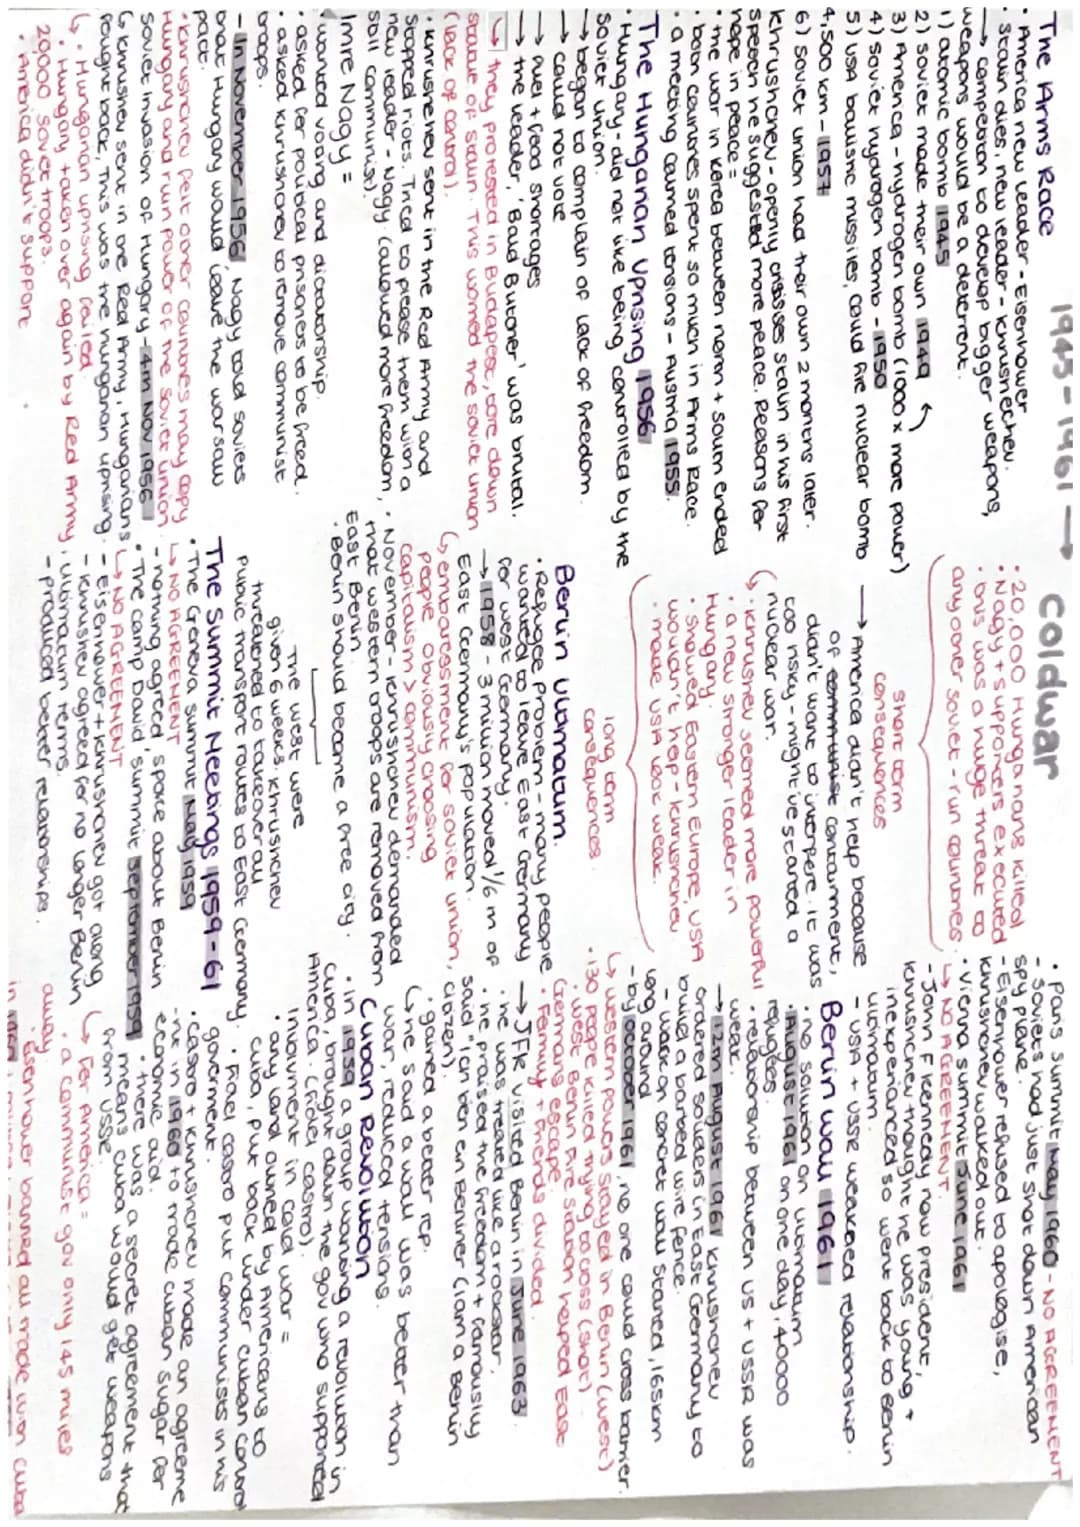 1945-1961 → Coldwar
The Arms Race
• America new leader - Eisenhower
• Stalin dies, new leader - Khrushchev.
→ competition to develop bigger weapons,
weapons would be a deterrent.
1) atomic bomb 1945
2) soviet made their own 1949
3) America - hydrogen bomb (1000 x more power)
4) Soviet hydrogen bomb - 1950
5) USA ballistic missiles, could fire nuclear bomb
4,500 km - 1957
6) Soviet union had their own 2 months later.
Khrushchev - openly crisises Stalin in his first
speech he suggested more peace. Reasons for
hope in peace =
• the war in Korea between north + south ended
• both countries spent so much in Arms Race.
• a meeting calmed tensions - Austria 1955.
The Hungarian Uprising 1956
• Hungary - did not like being controlled by the
soviet union.
→ began to complain of lack of freedom.
→ could not vote
→ fuel + food shortages
→ the leader, 'Bald Butcher' was brutal.
↳ they protested in Budapest, tore down
statue of stalin. This worried the soviet union
(lack of control).
• Khrushchev sent in the Red Army and
stopped riots. Tried to please them with a
new leader - Nagy. (allowed more freedom,
still communist).
Imre Nagy =
• wanted voting and dictatorship.
• asked for political prisoners to be freed.
• asked Khrushchev to remove communist
troops.
- In November 1956, Nagy told soviets
that Hungary would leave the warsaw
pact.
• Khrushchev felt other countries may copy
Hungary and ruin power of the soviet union
Soviet invasion of Hungary - 4th Nov 1956
↳ Khrushchev sent in the Red Army, Hungarians
fought back, This was the hungarian uprising.
↳ • Hungarian uprising failed.
• Hungary taken over again by Red Army,
20000 soviet troops.
• America didn't support
• 20,000 Hungarians killed
• Nagy + supporters executed
• this was a huge threat to
any other soviet-run countries
short term
consequences
→ America didn't help because
of containment,
didn't want to interfere. It was
too risky - might've started a
nuclear war.
↳ • Khrushchev seemed more powerful
• a new stronger leader in
Hungary.
• showed Eastern Europe, USA
wouldn't help - Khrushchev
• made USA look weak.
long term
consequences.
Berlin Ultimatum.
• Refugee Problem - many people
wanted to leave East Germany
for west Germany.
→ 1958 - 3 million moved 1/6 th of
East Germany's population.
↳ embarrassment for soviet union,
people obviously choosing
capitalism > communism.
• November - Khrushchev demanded
that western troops are removed from
East Berlin.
• Berlin should become a free city.
The west were
given 6 weeks, Khrushchev
threatened to takeover all
public transport routes to East Germany.
The Summit Meetings 1959-61
• The Geneva Summit May 1959
↳ NO AGREEMENT
- nothing agreed, space about Berlin
• The Camp David, Summit September 1959
↳ NO AGREEMENT
- Eisenhower + Khrushchev got along
- Khrushchev agreed for no longer Berlin
ultimatum terms.
- produced better relationships.
• Paris Summit May 1960 - NO AGREEMENT
- Soviets had just shot down American
spy plane.
- Eisenhower refused to apologise,
Khrushchev walked out.
• Vienna summit June 1961
↳ NO AGREEMENT.
- John F Kennedy now president,
Khrushchev thought he was young +
inexperianced so went back to Berlin
ultimatum.
- USA + USSR weakaed relationship.
Berlin wall 1961
• no solution on ultimatum
• August 1961 on one day, 40000
refugees.
• relationship between US + USSR was
weak.
→ 12th August 1961 Khrushchev
ordered soldiers in East Germany to
build a barbed wire fence.
- work on concret wall started, 165km
long around
- by october 1961, no one could cross barrier.
↳ western powers stayed in Berlin (west)
• 130 people killed trying to cross (shot)
• west Berlin Fire station helped East
Germans escape.
• Family + friends divided
→ JFK visited Berlin in June 1963
• he was treated like a rockstar.
• he praised the freedom + famously
said "ich bin ein Berliner (I am a Berlin
citizen).
• gained a better rep.
↳ he said a wall was better than
war, reduced tensions.
Cuban Revolution
• in 1959 a group wanting a revolution in
Cuba, brought down the gov who supported
America. (Fidel Castro).
involvment in cold war =
• any land owned by Americans to
Cuba, put back under cuban control
• Fidel Castro put communists in his
government.
• Castro + Khrushchev made an agreeme
-nt in 1960 to trade cuban sugar for
economic aid.
• there was a secret agreement that
means cuba would get weapons
from USSR.
↳ For America =
• a communist gov only 145 miles
away
• Eisenhower banned all trade with cuba